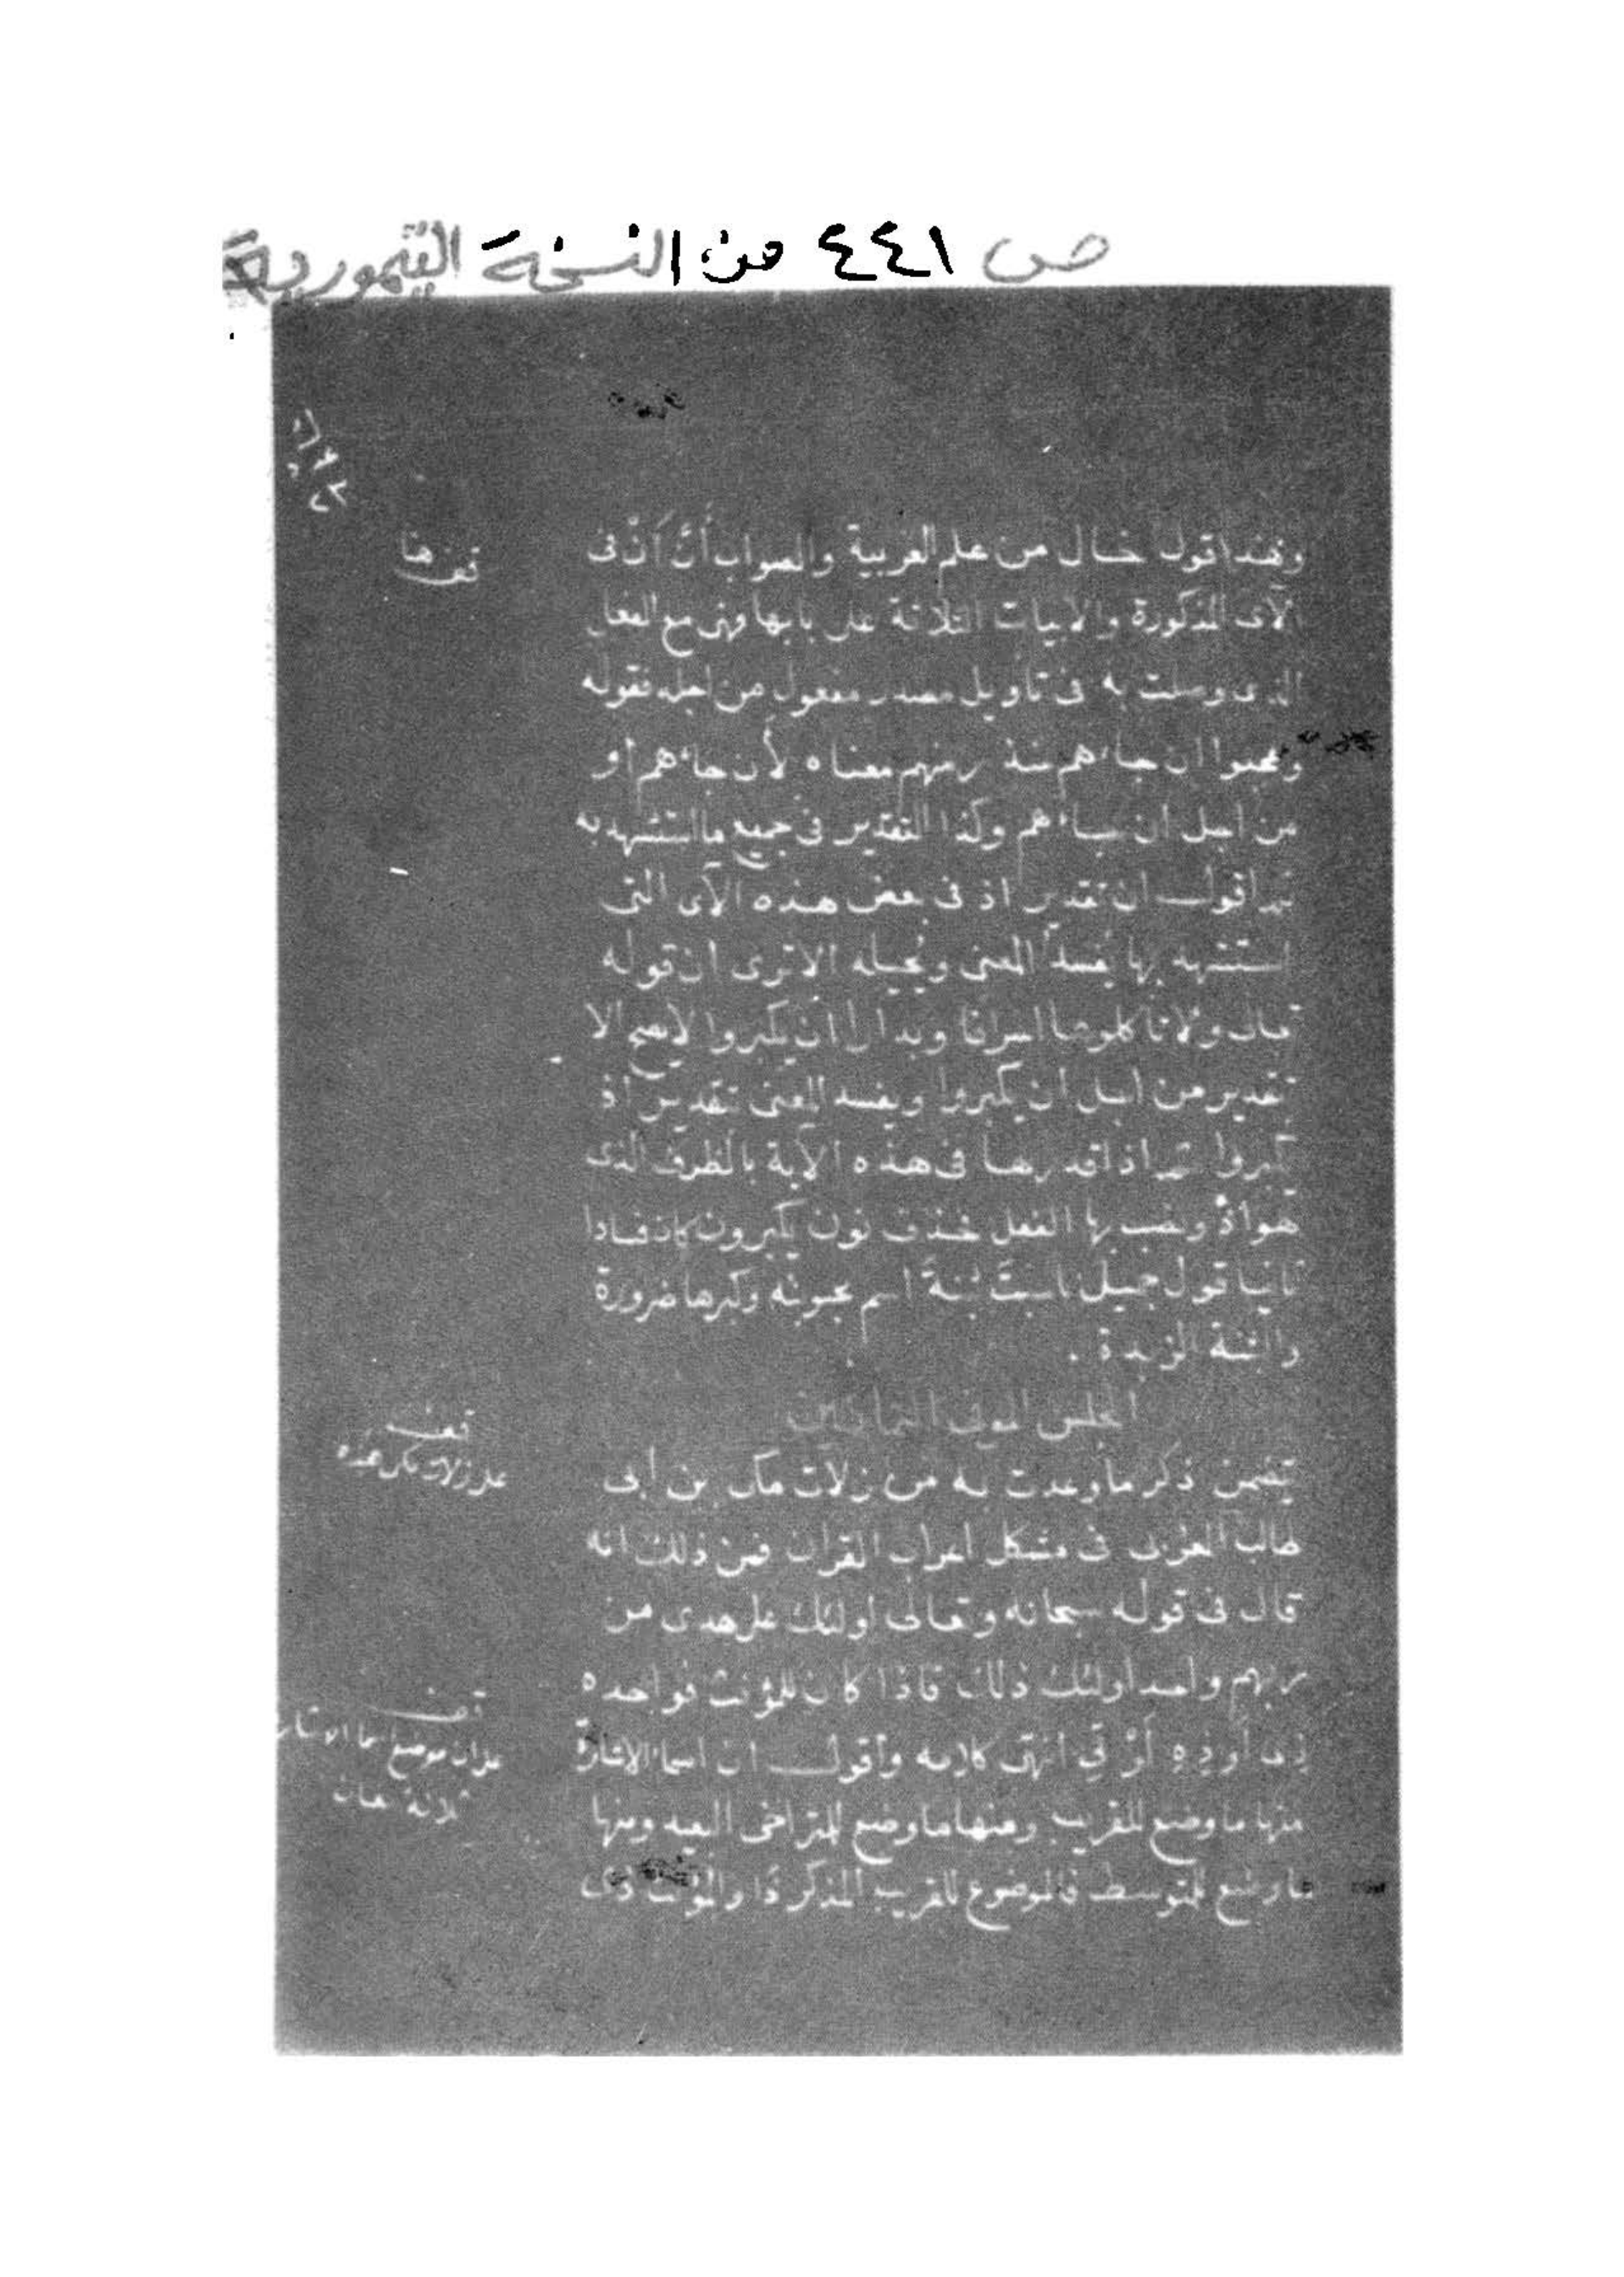 ص ٤٤١ من النسخة التيمورية
وهذا قول خال من علم العربية والصواب أنّ أنْ فى
الآى المذكورة والابيات الثلاثة على بابها وهى مع الفعل
الذى وصلت به فى تأويل مصدر مفعول من اجله فقوله
وعجبوا ان جاءهم منذر منهم معناه لأن جاءهم او
من اجل ان جاءهم وكذا التقدير فى جميع ما استشهد به
ثم اقول ان تقدير اذ فى بعض هذه الآى التى
استشهد بها يفسد المعنى ويحيله الا ترى ان قوله
تعالى ولا تأكلوها اسرافا وبدارا ان يكبروا لا يصح الا
بتقدير من اجل ان يكبروا ويفسد المعنى تقدير اذ
يكبروا ثم اذا قدرها فى هذه الآية بالظرف الذى
هو اذ ونصب بها الفعل فحذف نون يكبرون كان فسادا
ثانيا قول جميل احبت بثنة اسم محبوبته وكبرها ضرورة
والبثنة الزبدة .
المجلس الموفى الثمانين
يتضمن ذكر ما وعدت به من زلات مكى بن أبى
طالب المغربى فى مشكل اعراب القرآن فمن ذلك انه
قال فى قوله سبحانه وتعالى اولئك على هدى من
ربهم واحد اولئك ذلك فاذا كان للمؤنث فواحده
ذى أو ذِهِ أَوْ تِى انتهى كلامه وأقول ان اسماء الاشارة
منها ما وضع للقريب ومنها ما وضع للمتراخى البعيد ومنها
ما وضع للمتوسط فالموضوع للقريب المذكر ذا وللمؤنث ذى
قف هنا
قف
على زلات مكى هذه
قف
على ان موضع اسما الاشار
ثلاثة